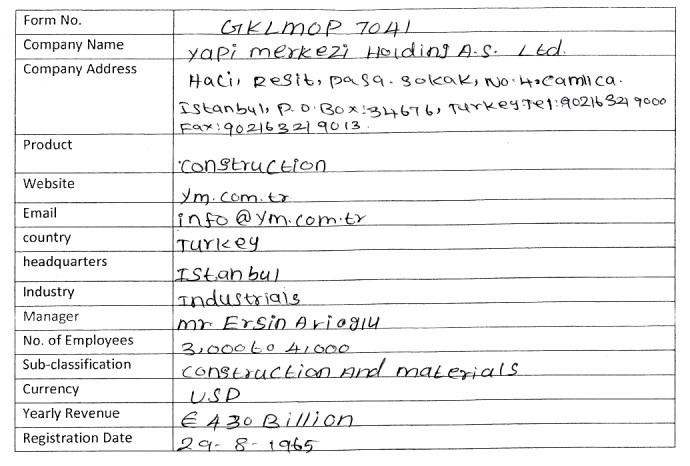 Form No. GKLMOP 7041
Company Name Yapi merkezi Holding A.S. Ltd.
Company Address Haci, Resit, pasa. sokak, No. 4, camlica.
Istanbul, P.O.Box:34676, Turkey Tel:90216 321 9000
Fax:90216 321 9013.
Product construction
Website ym.com.tr
Email info@ym.com.tr
country Turkey
headquarters Istanbul
Industry Industrials
Manager mr Ersin Arioglu
No. of Employees 3,000 to 4,000
Sub-classification construction And materials
Currency USD
Yearly Revenue € 430 Billion
Registration Date 29-8-1965